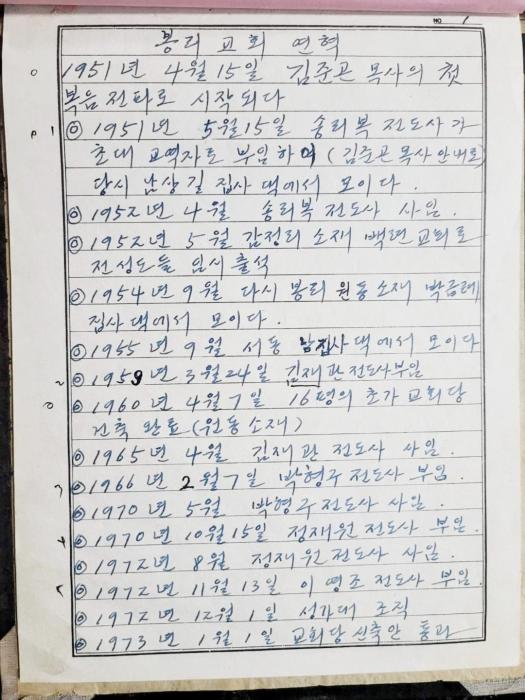 NO 1
봉리 교회 연혁
1951년 4월 15일 김준곤 목사의 첫
복음 전파로 시작되다
◎ 1951년 5월 15일 송리복 전도사가
초대 교역자로 부임하여 (김준곤 목사 안내로)
당시 남상길 집사 댁에서 모이다.
◎ 1952년 4월 송리복 전도사 사임.
◎ 1952년 5월 감정리 소재 백련교회로
전성도들 임시 출석
◎ 1954년 9월 다시 봉리 원동 소재 박금례
집사 댁에서 모이다.
◎ 1955년 9월 서동 남집사 댁에서 모이다
◎ 1959년 3월 24일 김재관 전도사 부임
◎ 1960년 4월 7일 16평의 초가 교회당
건축 완료 (원동 소재)
◎ 1965년 4월 김재관 전도사 사임.
◎ 1966년 2월 7일 박형구 전도사 부임.
◎ 1970년 5월 박형구 전도사 사임.
◎ 1970년 10월 15일 정재원 전도사 부임.
◎ 1972년 8월 정재원 전도사 사임.
◎ 1972년 11월 13일 이영조 전도사 부임.
◎ 1972년 12월 1일 성가대 조직
◎ 1973년 1월 1일 교회당 신축안 통과